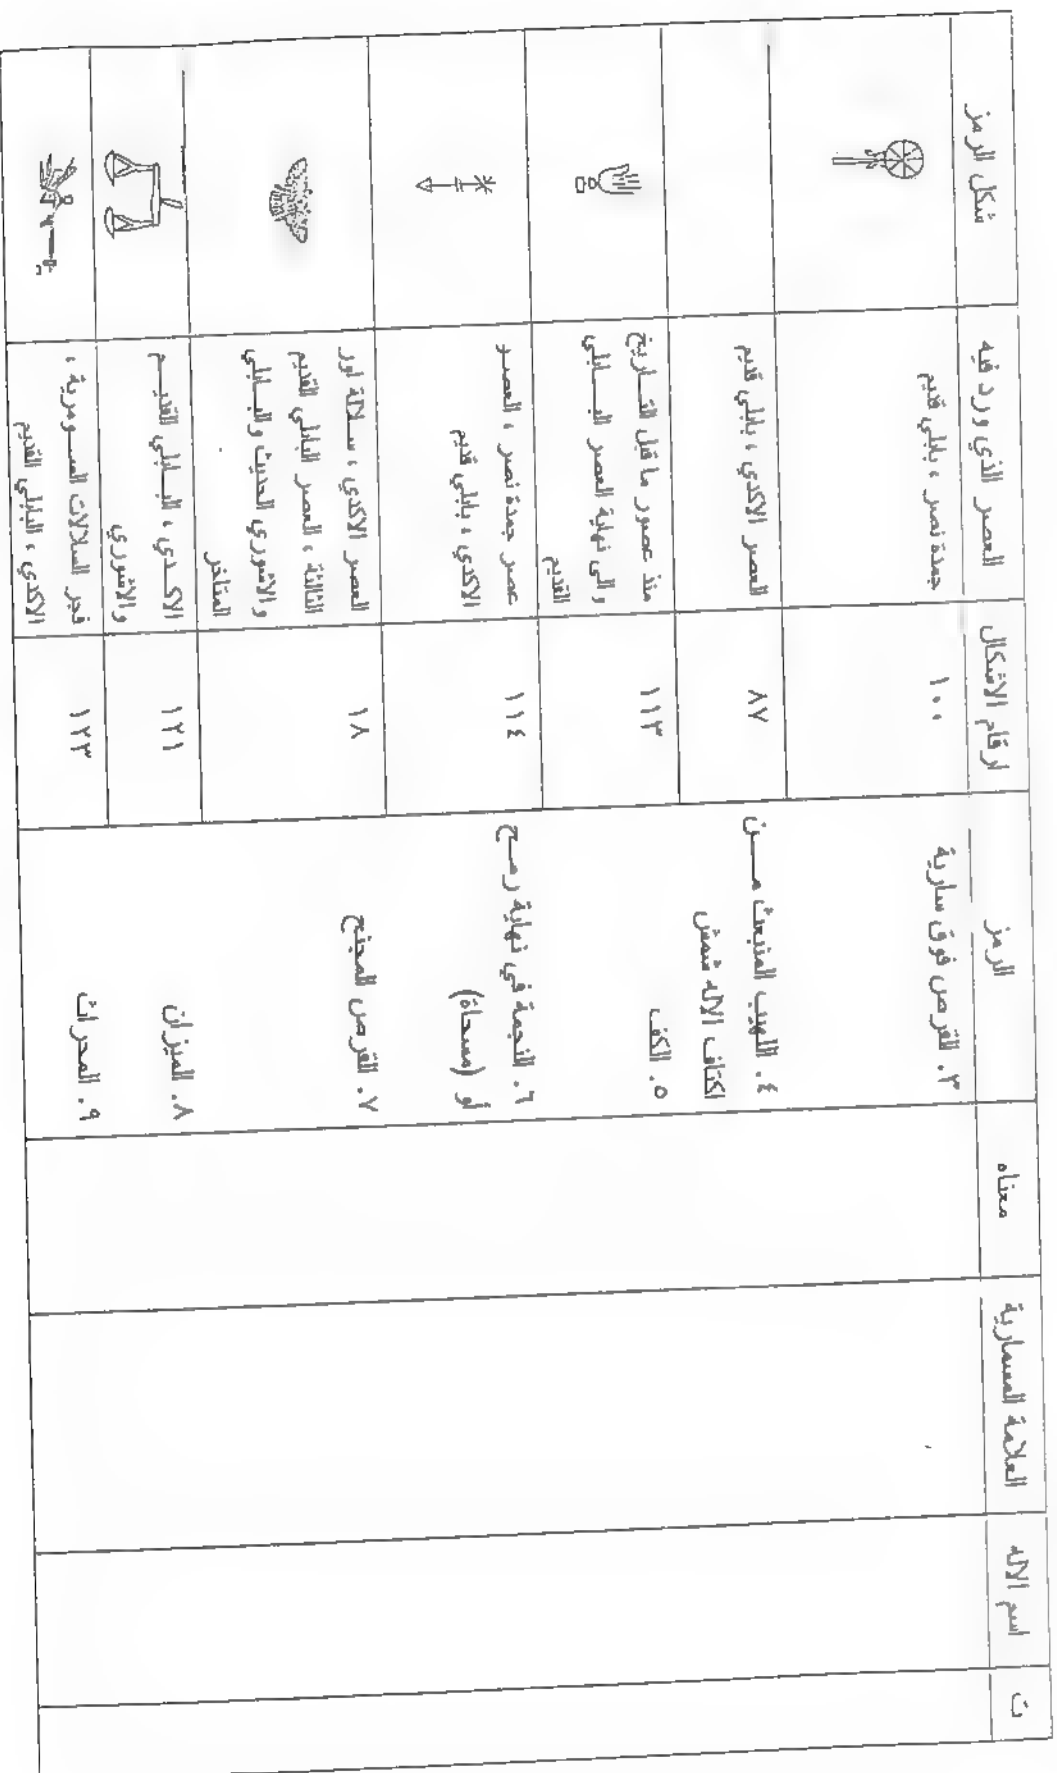 ت
اسم الاله
العلامة المسمارية
معناه
الرمز
ارقام الاشكال
العصر الذي ورد فيه
شكل الرمز
٣. القرص فوق سارية
١٠٠
جمدة نصر ، بابلي قديم
٤. اللهيب المنبعث مــن
اكتاف الاله شمش
٨٧
العصر الاكدي ، بابلي قديم
٥. الكف
١١٣
منذ عصور ما قبل التــاريخ
والى نهاية العصر البــابلي
القديم
٦. النجمة في نهاية رمــح
أو (مسحاة)
١١٤
عصر جمدة نصر ، العصــر
الاكدي ، بابلي قديم
٧. القرص المجنح
١٨
العصر الاكدي ، ســلالة اور
الثالثة ، العصر البابلي القديم
والاشوري الحديث والبــابلي
المتاخر
٨. الميزان
١٢١
الاكــدي ، البــابلي القديــم
والاشوري
٩. المحراث
١٢٣
فجر السلالات الســومرية ،
الاكدي ، البابلي القديم